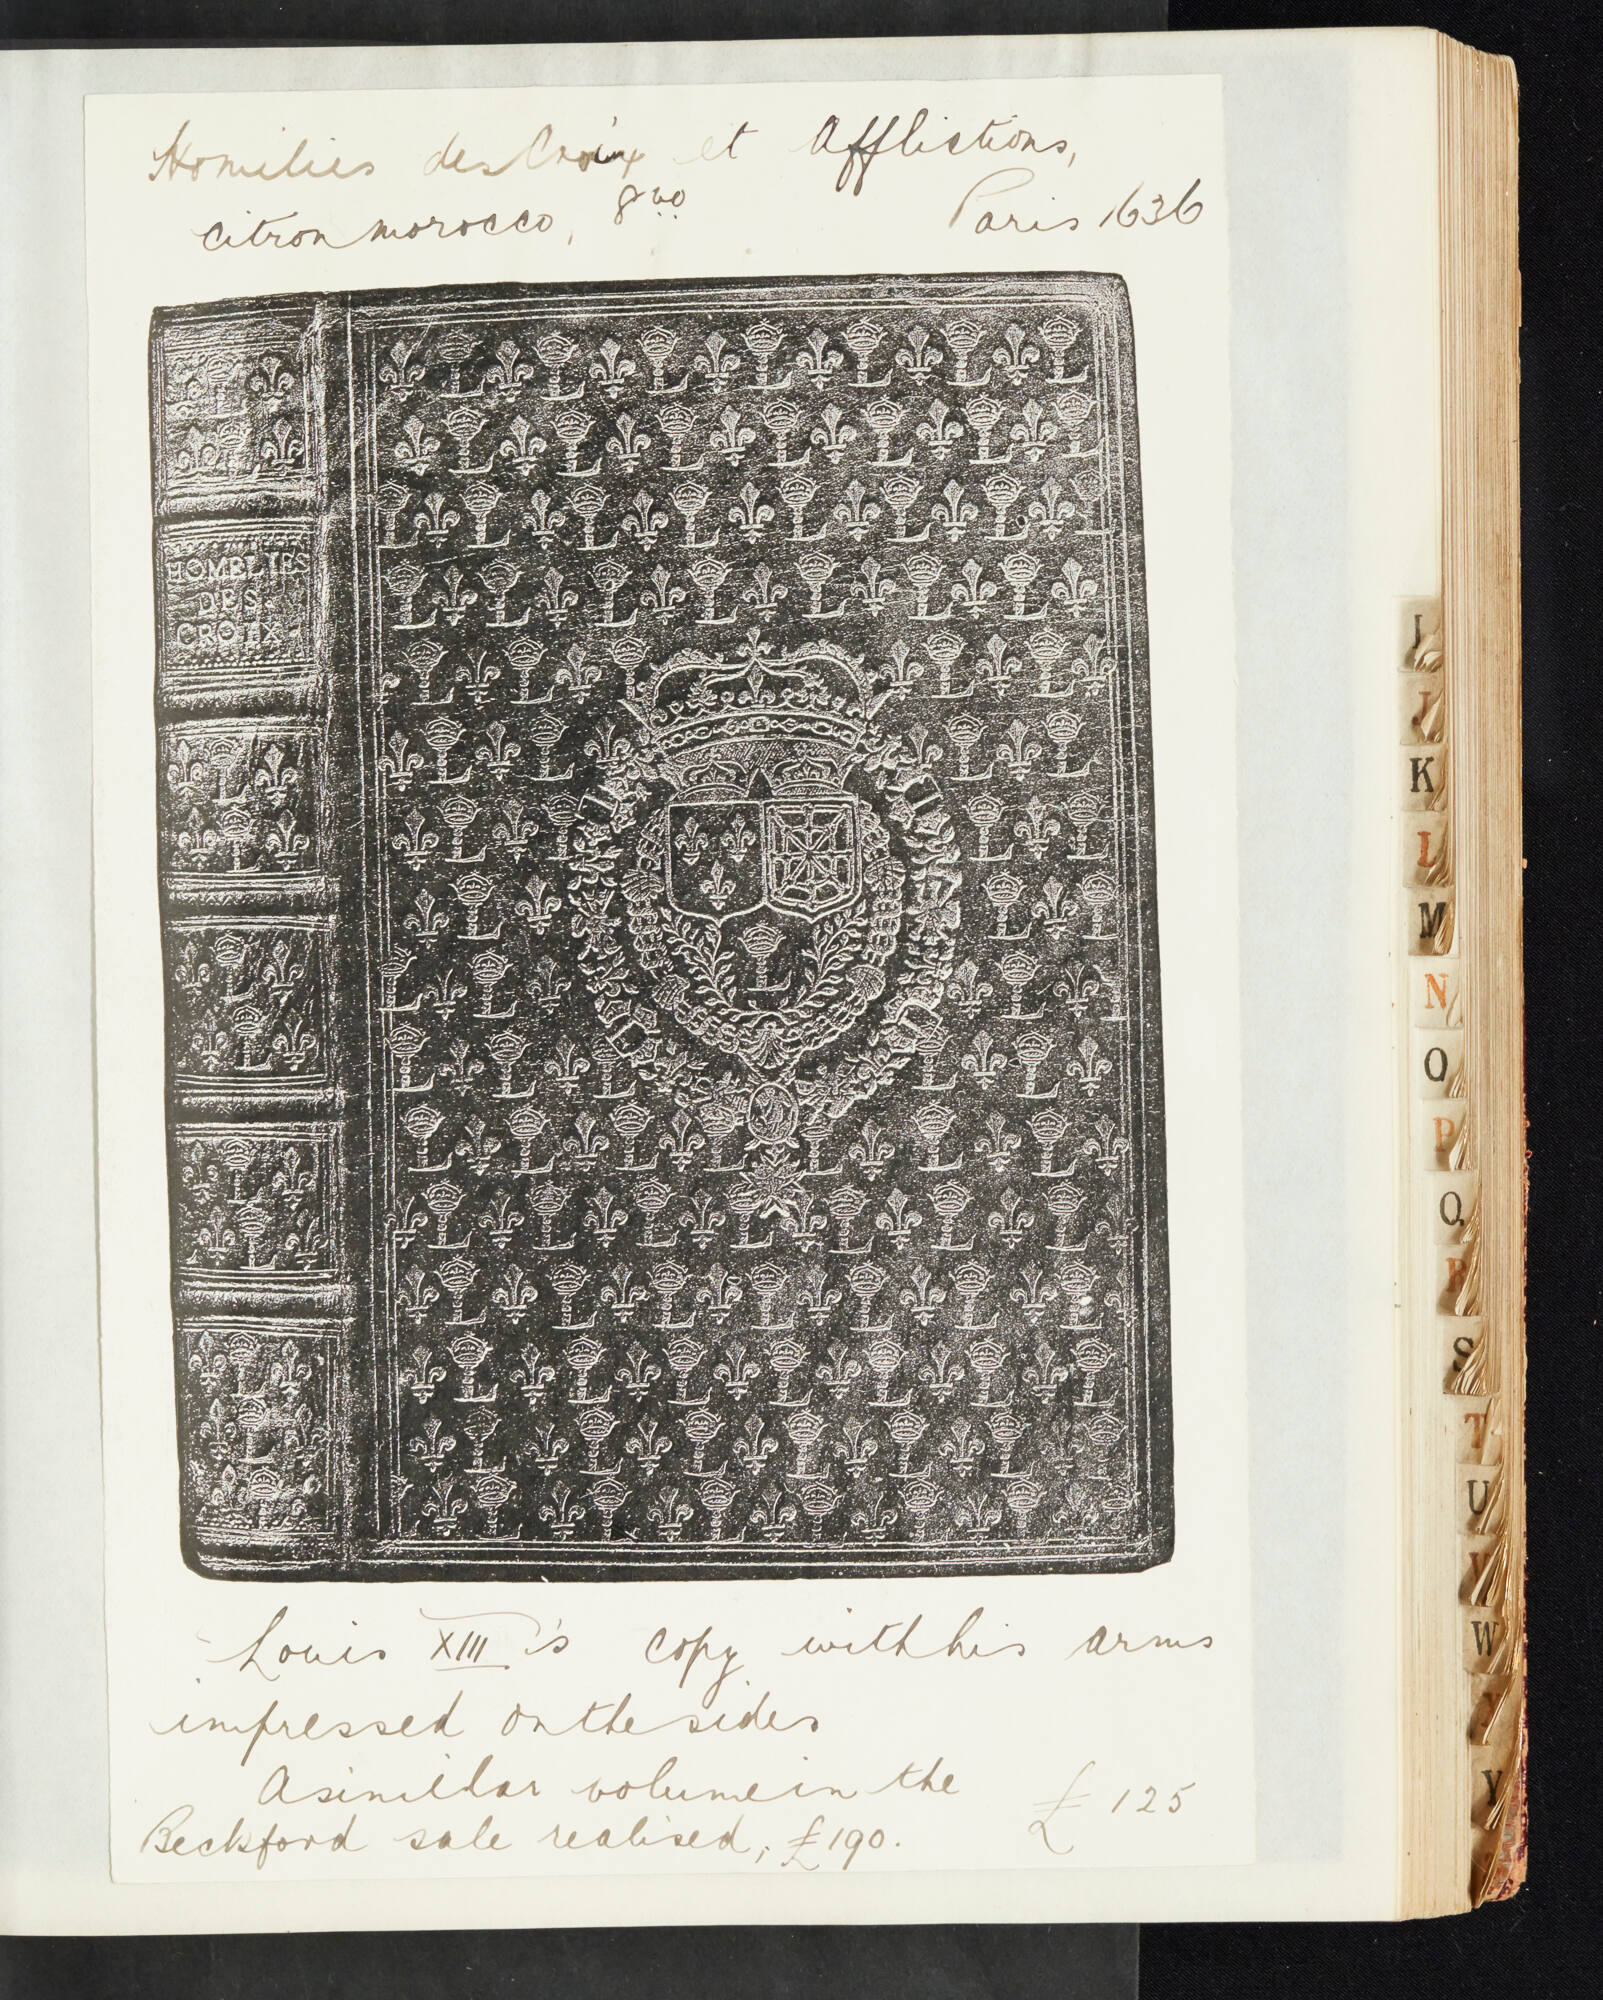 Homilies des Croix et Afflictions,
citron morocco, 8vo Paris 1636
HOMELIES
DES
CROIX
Louis XIII's copy with his arms
impressed on the sides
A similar volume in the
Beckford sale realised, £190. £125
I
J
K
L
M
N
O
P
Q
R
S
T
U
V
W
X
Y